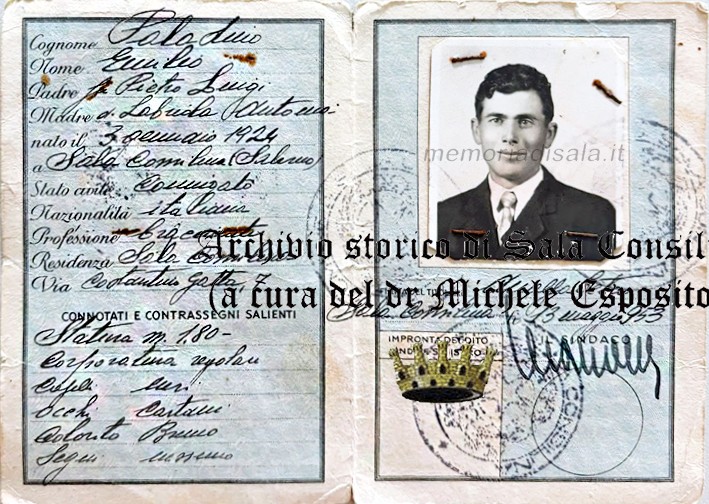 Cognome Paladino
Nome Emilio
Padre fu Pietro Luigi
Madre di Labriola Antonia
nato il 3 gennaio 1924
a Sala Consilina (Salerno)
Stato civile Coniugato
Nazionalità italiana
Professione bracciante
Residenza Sala Consilina
Via Costantino Gatta, 7
CONNOTATI E CONTRASSEGNI SALIENTI
Statura m. 1.80-
Corporatura regolare
Capelli neri
Occhi Castani
Colorito Bruno
Segni nessuno
memoriadisala.it
Archivio storico di Sala Consil
(a cura del dr Michele Esposito
Sala Consilina li, 13 maggio 953
IMPRONTA DEL DITO
INDICE SINISTRO
IL SINDACO